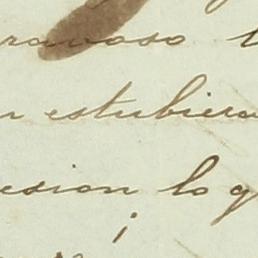 ravoso
estubiera
esion lo g